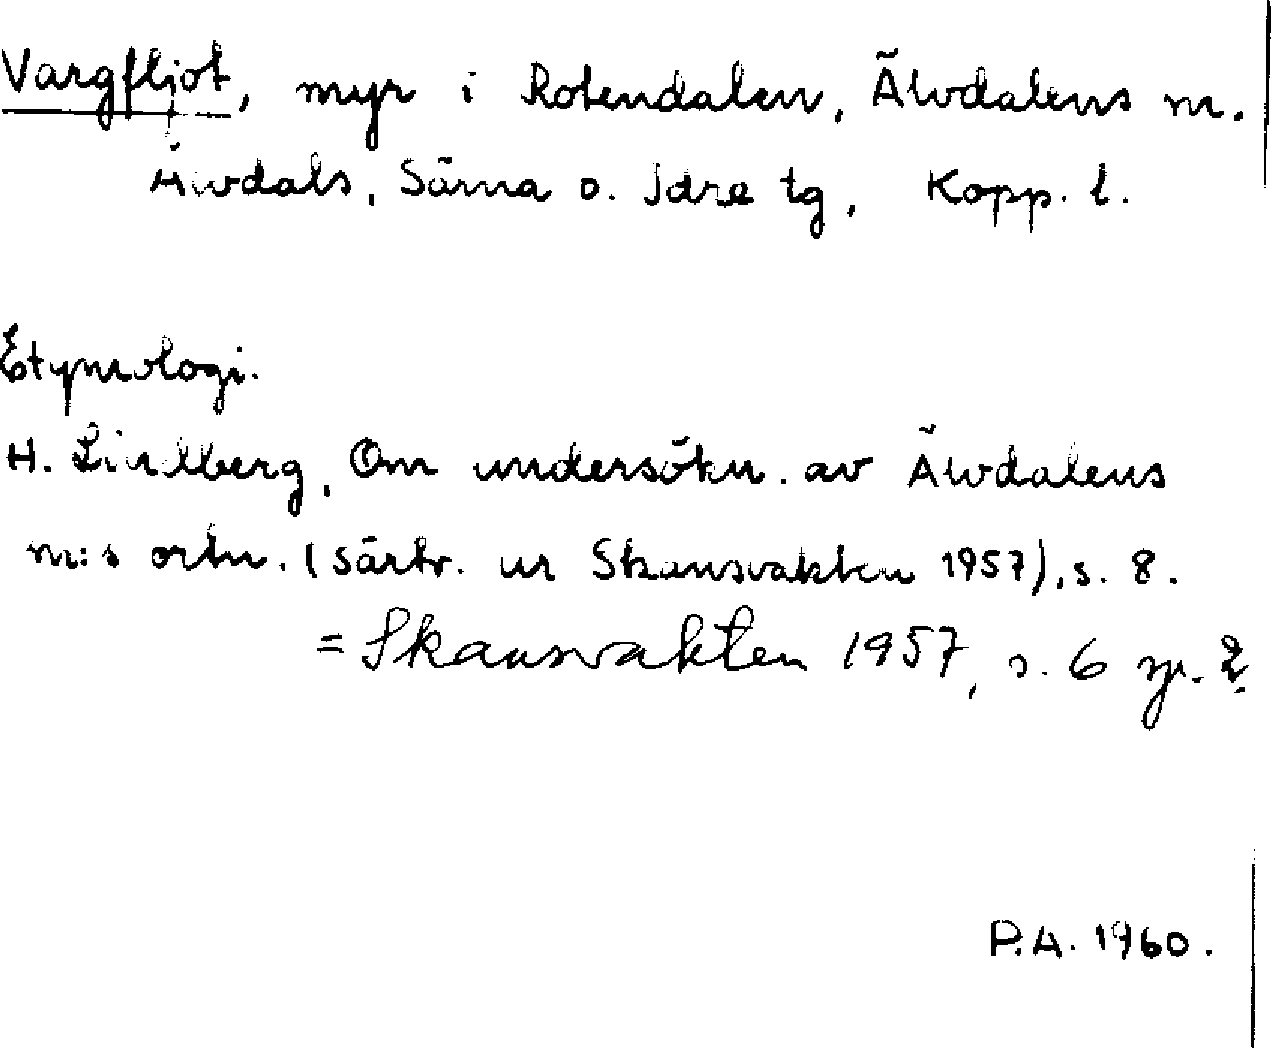 Vargfljot, myr i Rotendalen, Älvdalens m.
Älvdals, Särna o. Idre tg, Kopp. l.
Etymologi.
H. Lindberg, Om undersökn. av Älvdalens
m:s ortn. (särtr. ur Skansvakten 1957), s. 8.
= Skansvakten 1957, s. 6 sp. 2
P.A. 1960.